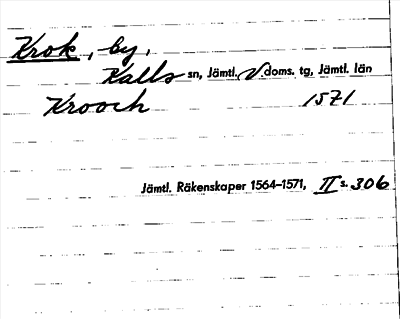 Krok, by.
Kalls sn, Jämtl. V. doms. tg, Jämtl. län
Krooch 1571
Jämtl. Räkenskaper 1564–1571, II s. 306